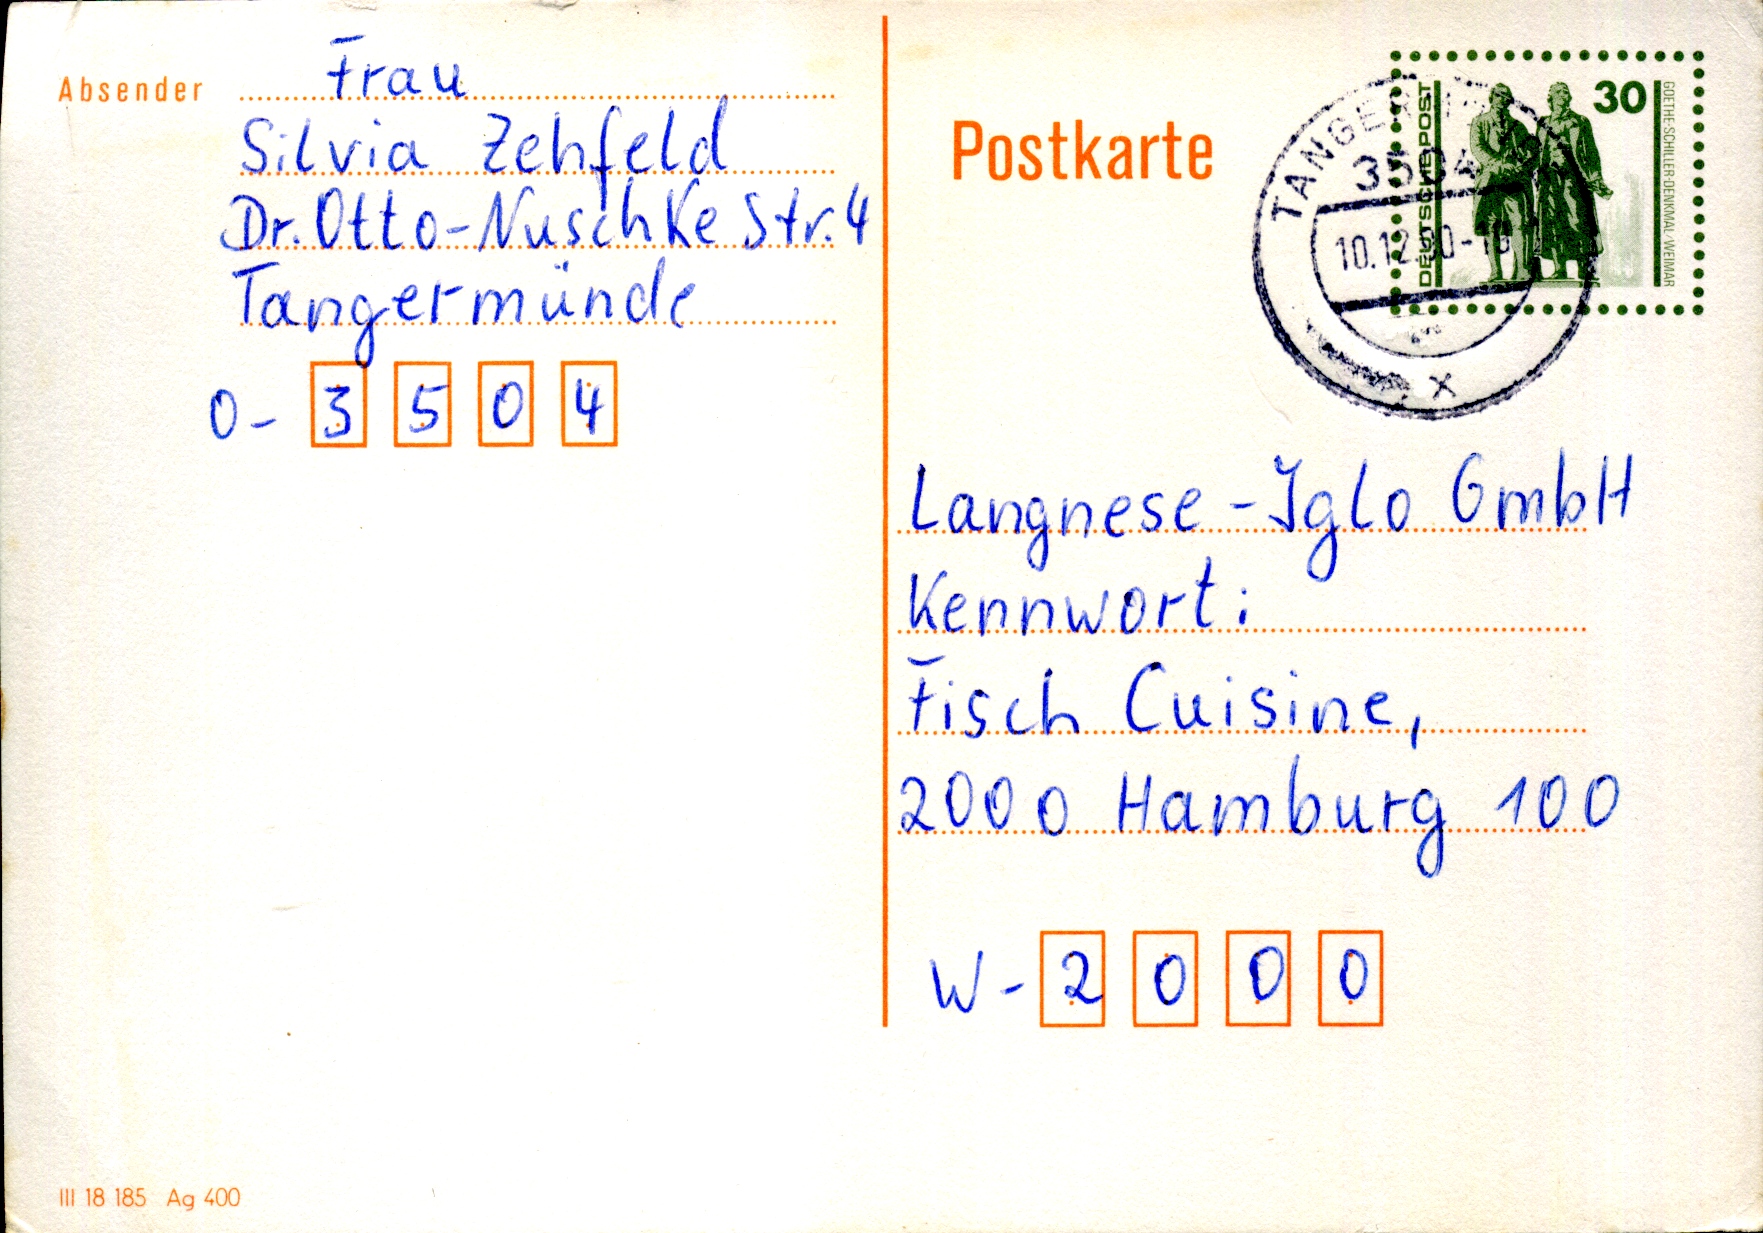 Absender Frau
Silvia Zehfeld
Dr. Otto-Nuschke Str. 4
Tangermünde
O- 3 5 0 4
III 18 185 Ag 400
Postkarte
DEUTSCHE POST
30
GOETHE-SCHILLER-DENKMAL/WEIMAR
3504
10.12.90-
x
Langnese-Iglo GmbH
Kennwort:
Fisch Cuisine,
2000 Hamburg 100
W- 2 0 0 0